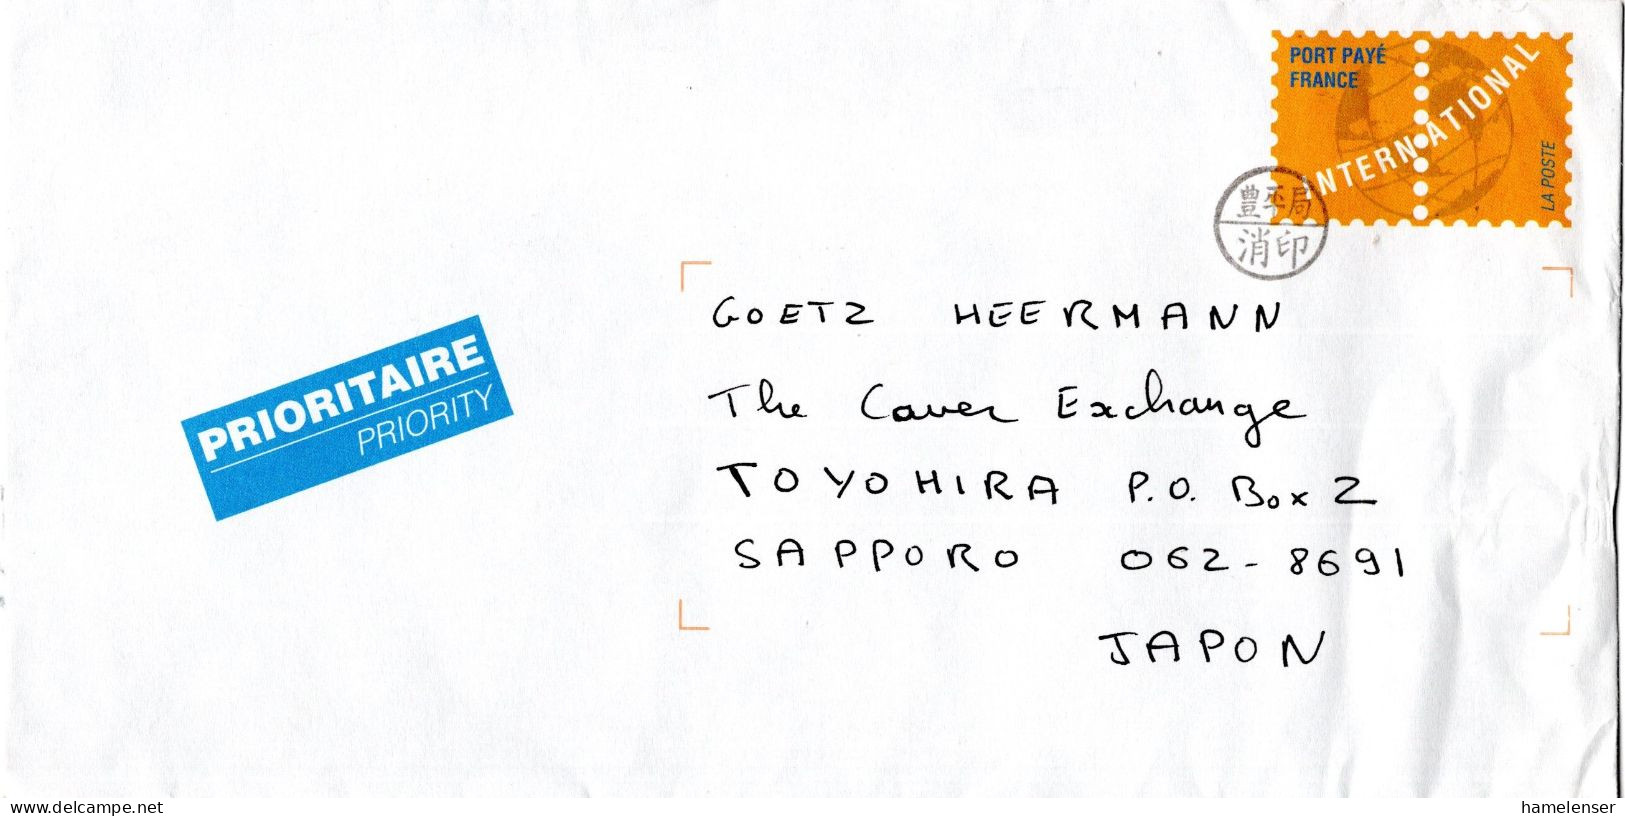 PORT PAYÉ
FRANCE
INTERNATIONAL
LA POSTE
豊平局
消印
PRIORITAIRE
PRIORITY
GOETZ HEERMANN
The Cover Exchange
TOYOHIRA P.O. Box 2
SAPPORO 062-8691
JAPON
www.delcampe.net
hamelenser